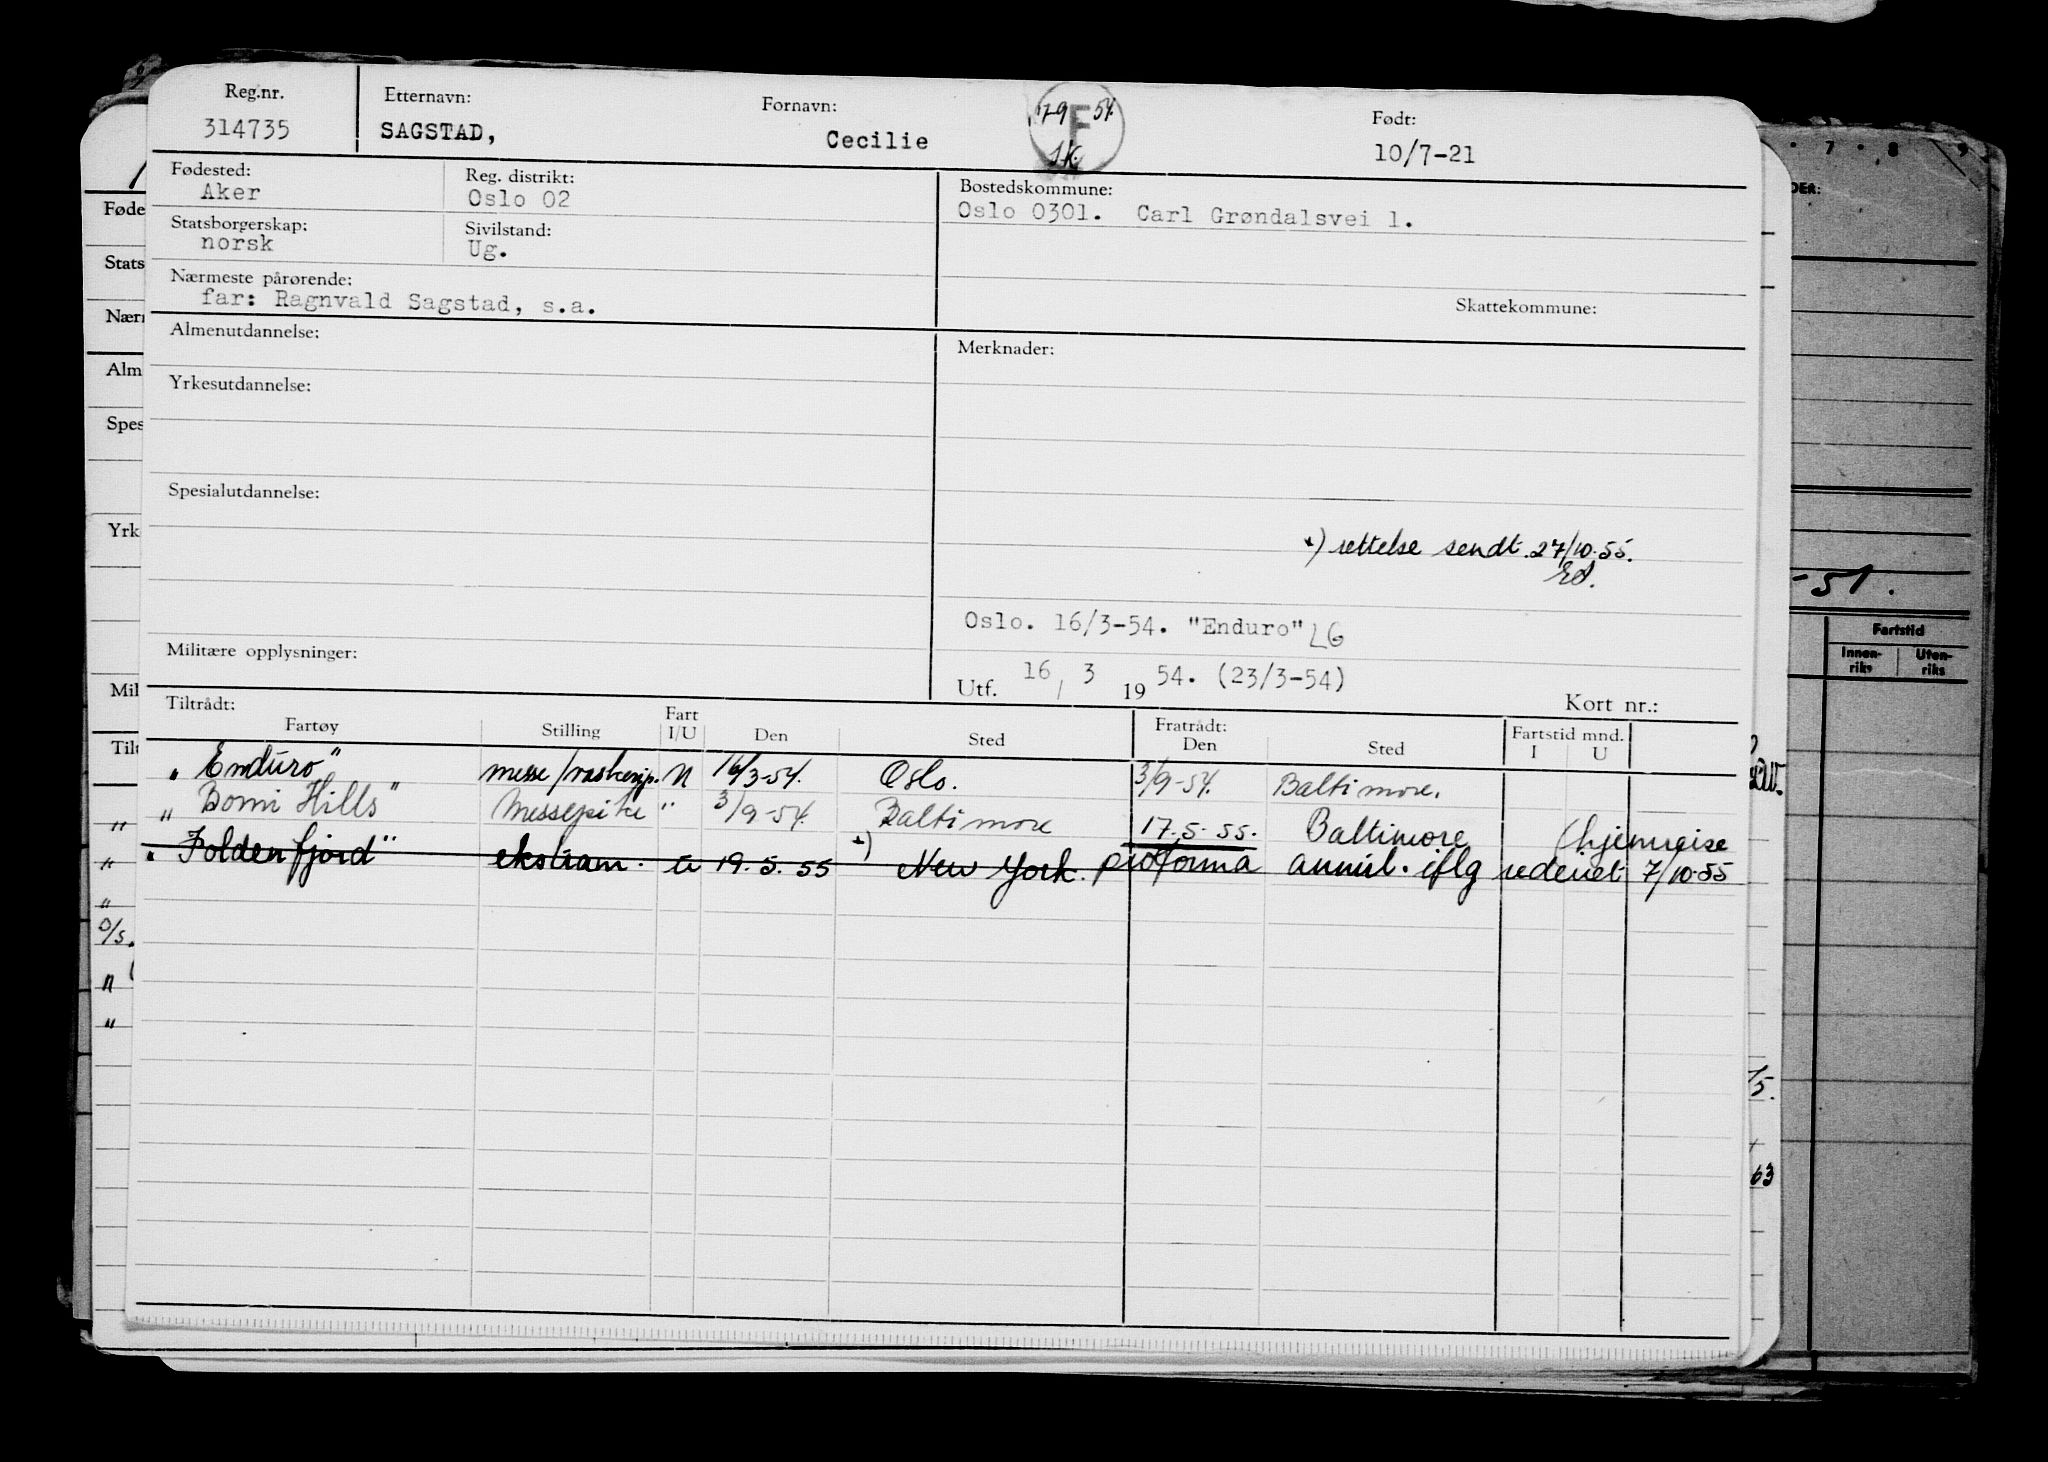 Reg.nr. Etternavn: Fornavn: Født:
314735 SAGSTAD, Cecilie 10/7-21
17-9 54. F
Fødested: Reg. distrikt: Bostedskommune:
Aker Oslo 02 Oslo 0301. Carl Grøndalsvei 1.
Statsborgerskap: Sivilstand:
norsk Ug.
Nærmeste pårørende: Skattekommune:
far: Ragnvald Sagstad, s.a.
Almenutdannelse: Merknader:
Yrkesutdannelse:
Spesialutdannelse:
*) rettelse sendt. 27/10.55.
Oslo. 16/3-54. "Enduro" LG
Militære opplysninger:
Utf. 16 / 3 19 54. (23/3-54)
Kort nr.:
Tiltrådt: Fart Fratrådt: Fartstid mnd.
Fartøy Stilling I/U Den Sted Den Sted I U
„Enduro" messe/ 16/3-54. Oslo. 3/9-54. Baltimore.
„Bomi Hills" Messepike " 3/9-54. Baltimore 17.5.55. Baltimore (hjemreise
„Foldenfjord" ekstram. u 19.5.55 *) New York. proforma annul. iflg rederiet 7/10-55
Føde
Stats
Nærm
Alm
Spes
Yrk
Mil
Tilt
7 8 9
DER:
-51.
Fartstid
Innen-riks Uten-riks
63